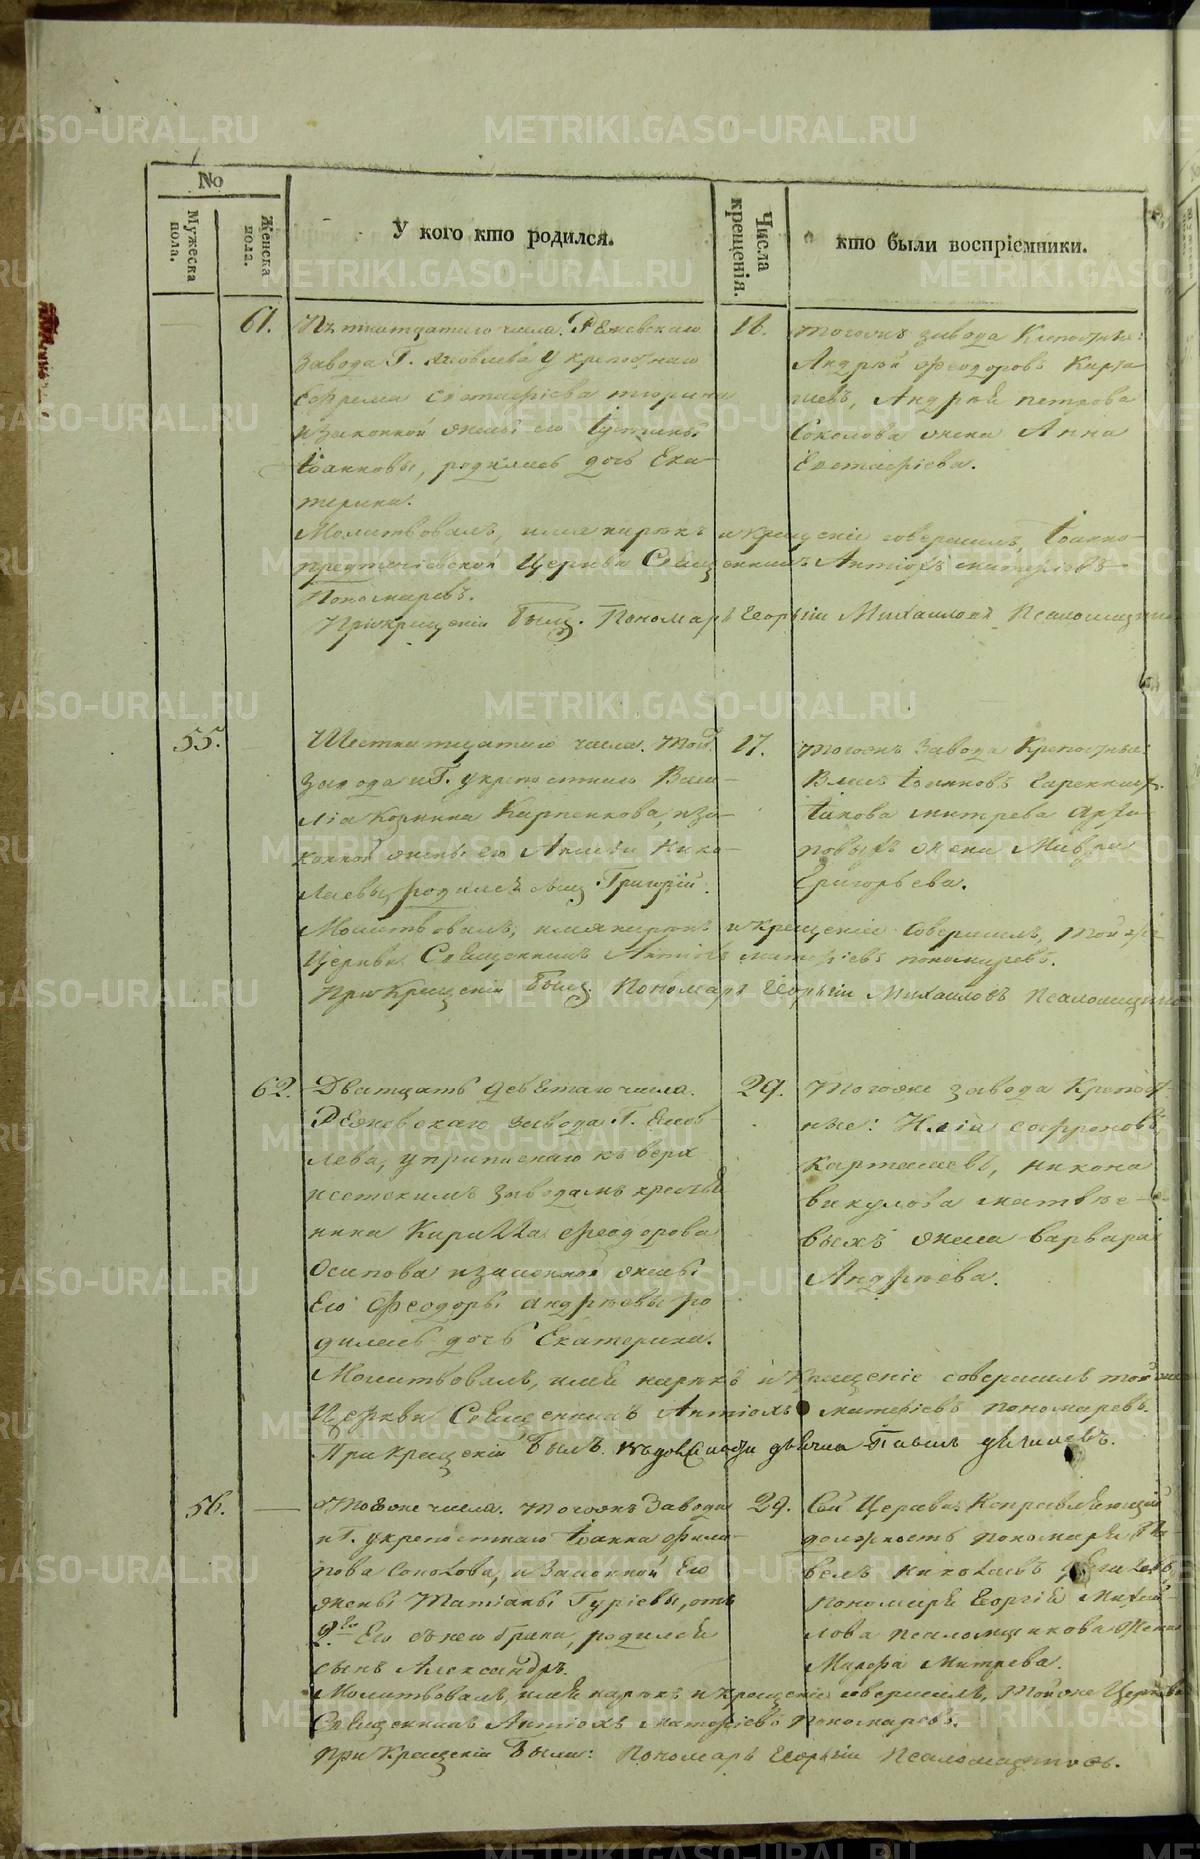 No
Мужеска пола.
Женска пола.
У кого кто родился.
Числа крещенія.
кто были воспріемники.
61.
Пятнатцатаго числа. Режевскаго
завода Г. Яковлева у крепостнаго
Ефрема Евстафіева
и законной жены его Іустины
Іоанновы, родилась дочь Ека-
терина.
18.
тогожъ завода Крепостные:
Андрей Феодоровъ Карта-
шевъ, Андрея петрова
Соколова жена Анна
Евстафіева.
Молитвовалъ, имя нарекъ и крещеніе совершилъ, Іоанно-
предтечевской Церкви Священникъ Антіохъ матфіевъ
Пономаревъ.
При крещеніи былъ. Пономарь Георгіи Михаиловъ Псаломщико
55.
Шестнатцатаго числа. того
завода и Г. у крепостнаго Васи-
лія Козмина Карпенкова, и за-
конной жены его Нико-
лаевы родился сынъ Григорій.
17.
тогожъ завода Крепостные:
Власъ Іоанновъ
Іакова митрева Архи-
повыхъ жена Мавра
Григорьева.
Молитвовалъ, имя нарекъ и крещеніе совершилъ, той же
Церкви Священникъ Антіохъ матфіевъ пономаревъ.
При Крещеніи былъ. Пономарь Георгіи Михаиловъ Псаломщико
62.
Дватцать девятаго числа.
Режевскаго завода Г. Яков
лева, у приписнаго къ верх
исетскимъ заводамъ крестья
нина Кирилла Феодорова
Осипова и законной жены
Его Феодоры Андреевы ро
дилась дочь Екатерина.
29.
Тогоже завода Крепост
ные: Илія сафроновъ
Карташевъ, никона
викулова матвее-
выхъ жена Варвара
Андреева.
Молитвовалъ, имя нарекъ и Крещеніе совершилъ той же
Церкви Священникъ Антіохъ матфіевъ Пономаревъ.
При крещеніи былъ. дьячка Павелъ
56.
Тогоже числа. тогожъ Завода
и Г. у крепостнаго Іоанна Фили-
пова Соколова, и Законной Его
жены Татіаны Гуріевы, отъ
2го Его съ нею брака, родился
сынъ Александръ.
29.
Сей Церкви Исправляющій
должность пономаря Па-
велъ Николаевъ
пономаря Георгія Михаи-
лова псаломщикова жена
Марфа Митрева.
Молитвовалъ, имя нарекъ и крещеніе совершилъ, Той же Церкви
Священникъ Антіохъ матфіевъ Пономаревъ.
При Крещеніи были: Пономарь Георгіи Псаломщиковъ.
METRIKI.GASO-URAL.RU